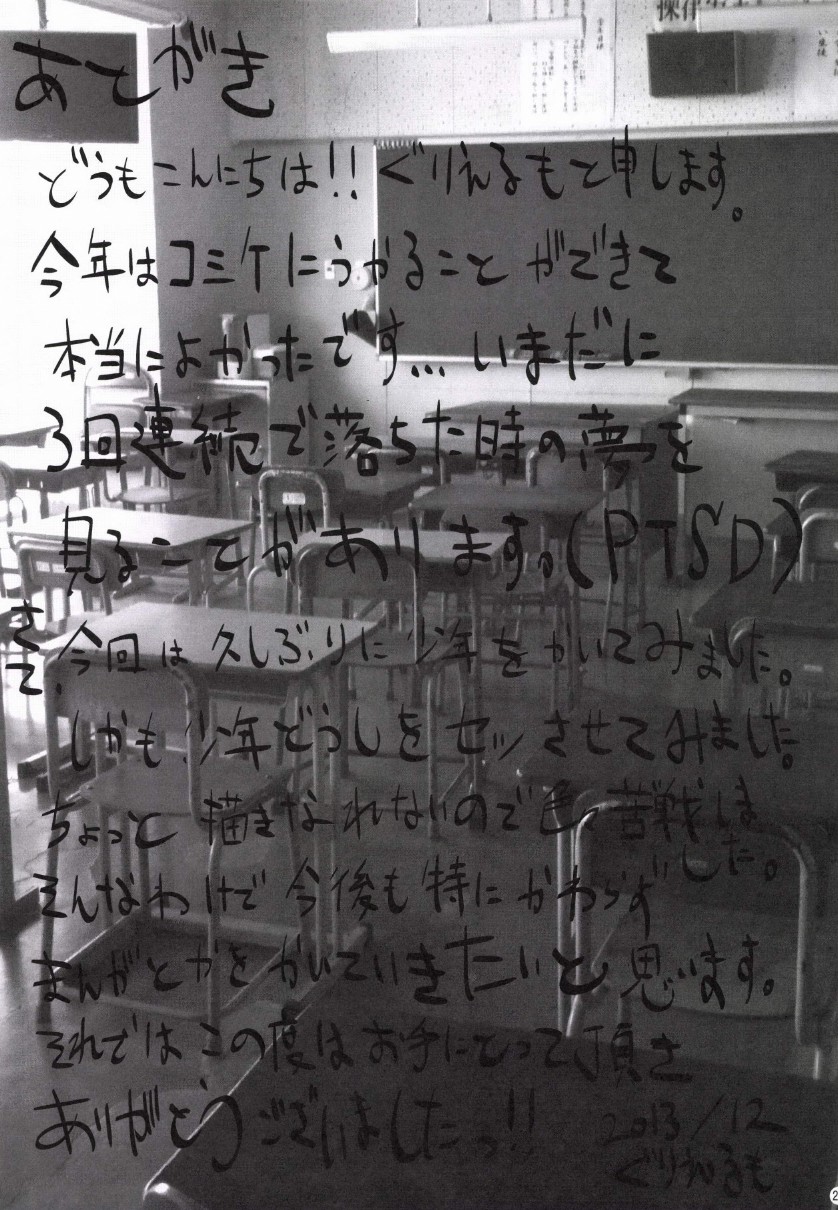 操作
あとがき
どうもこんにちは!!ぐりえるもと申します。
今年はコミケにうかることができて
本当によかったです…いまだに
3回連続で落ちた時の夢を
見ることがあります。(PTSD)
さて、今回は久しぶりに少年をかいてみました。
しかも少年どうしをセッさせてみました。
ちょっと描きなれないので色々苦戦しました。
そんなわけで今後も特にかわらず
まんがとかをかいていきたいと思います。
それではこの度はお手にとって頂き
ありがとうございましたっ!!
2013/12
ぐりえるも
2